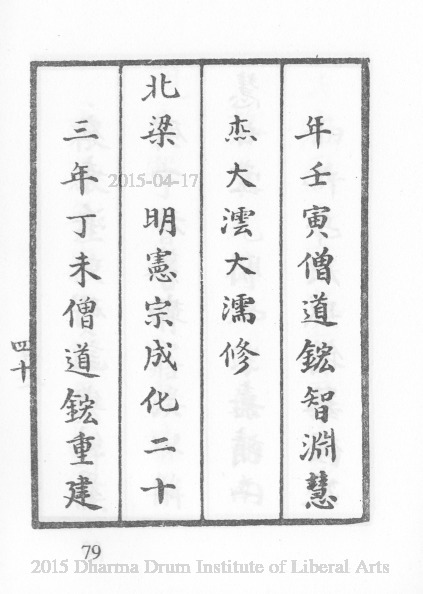 年壬寅僧道鋐智淵慧
杰大澐大濡修
北梁 明憲宗成化二十
三年丁未僧道鋐重建
四十
2015-04-17
79
2015 Dharma Drum Institute of Liberal Arts